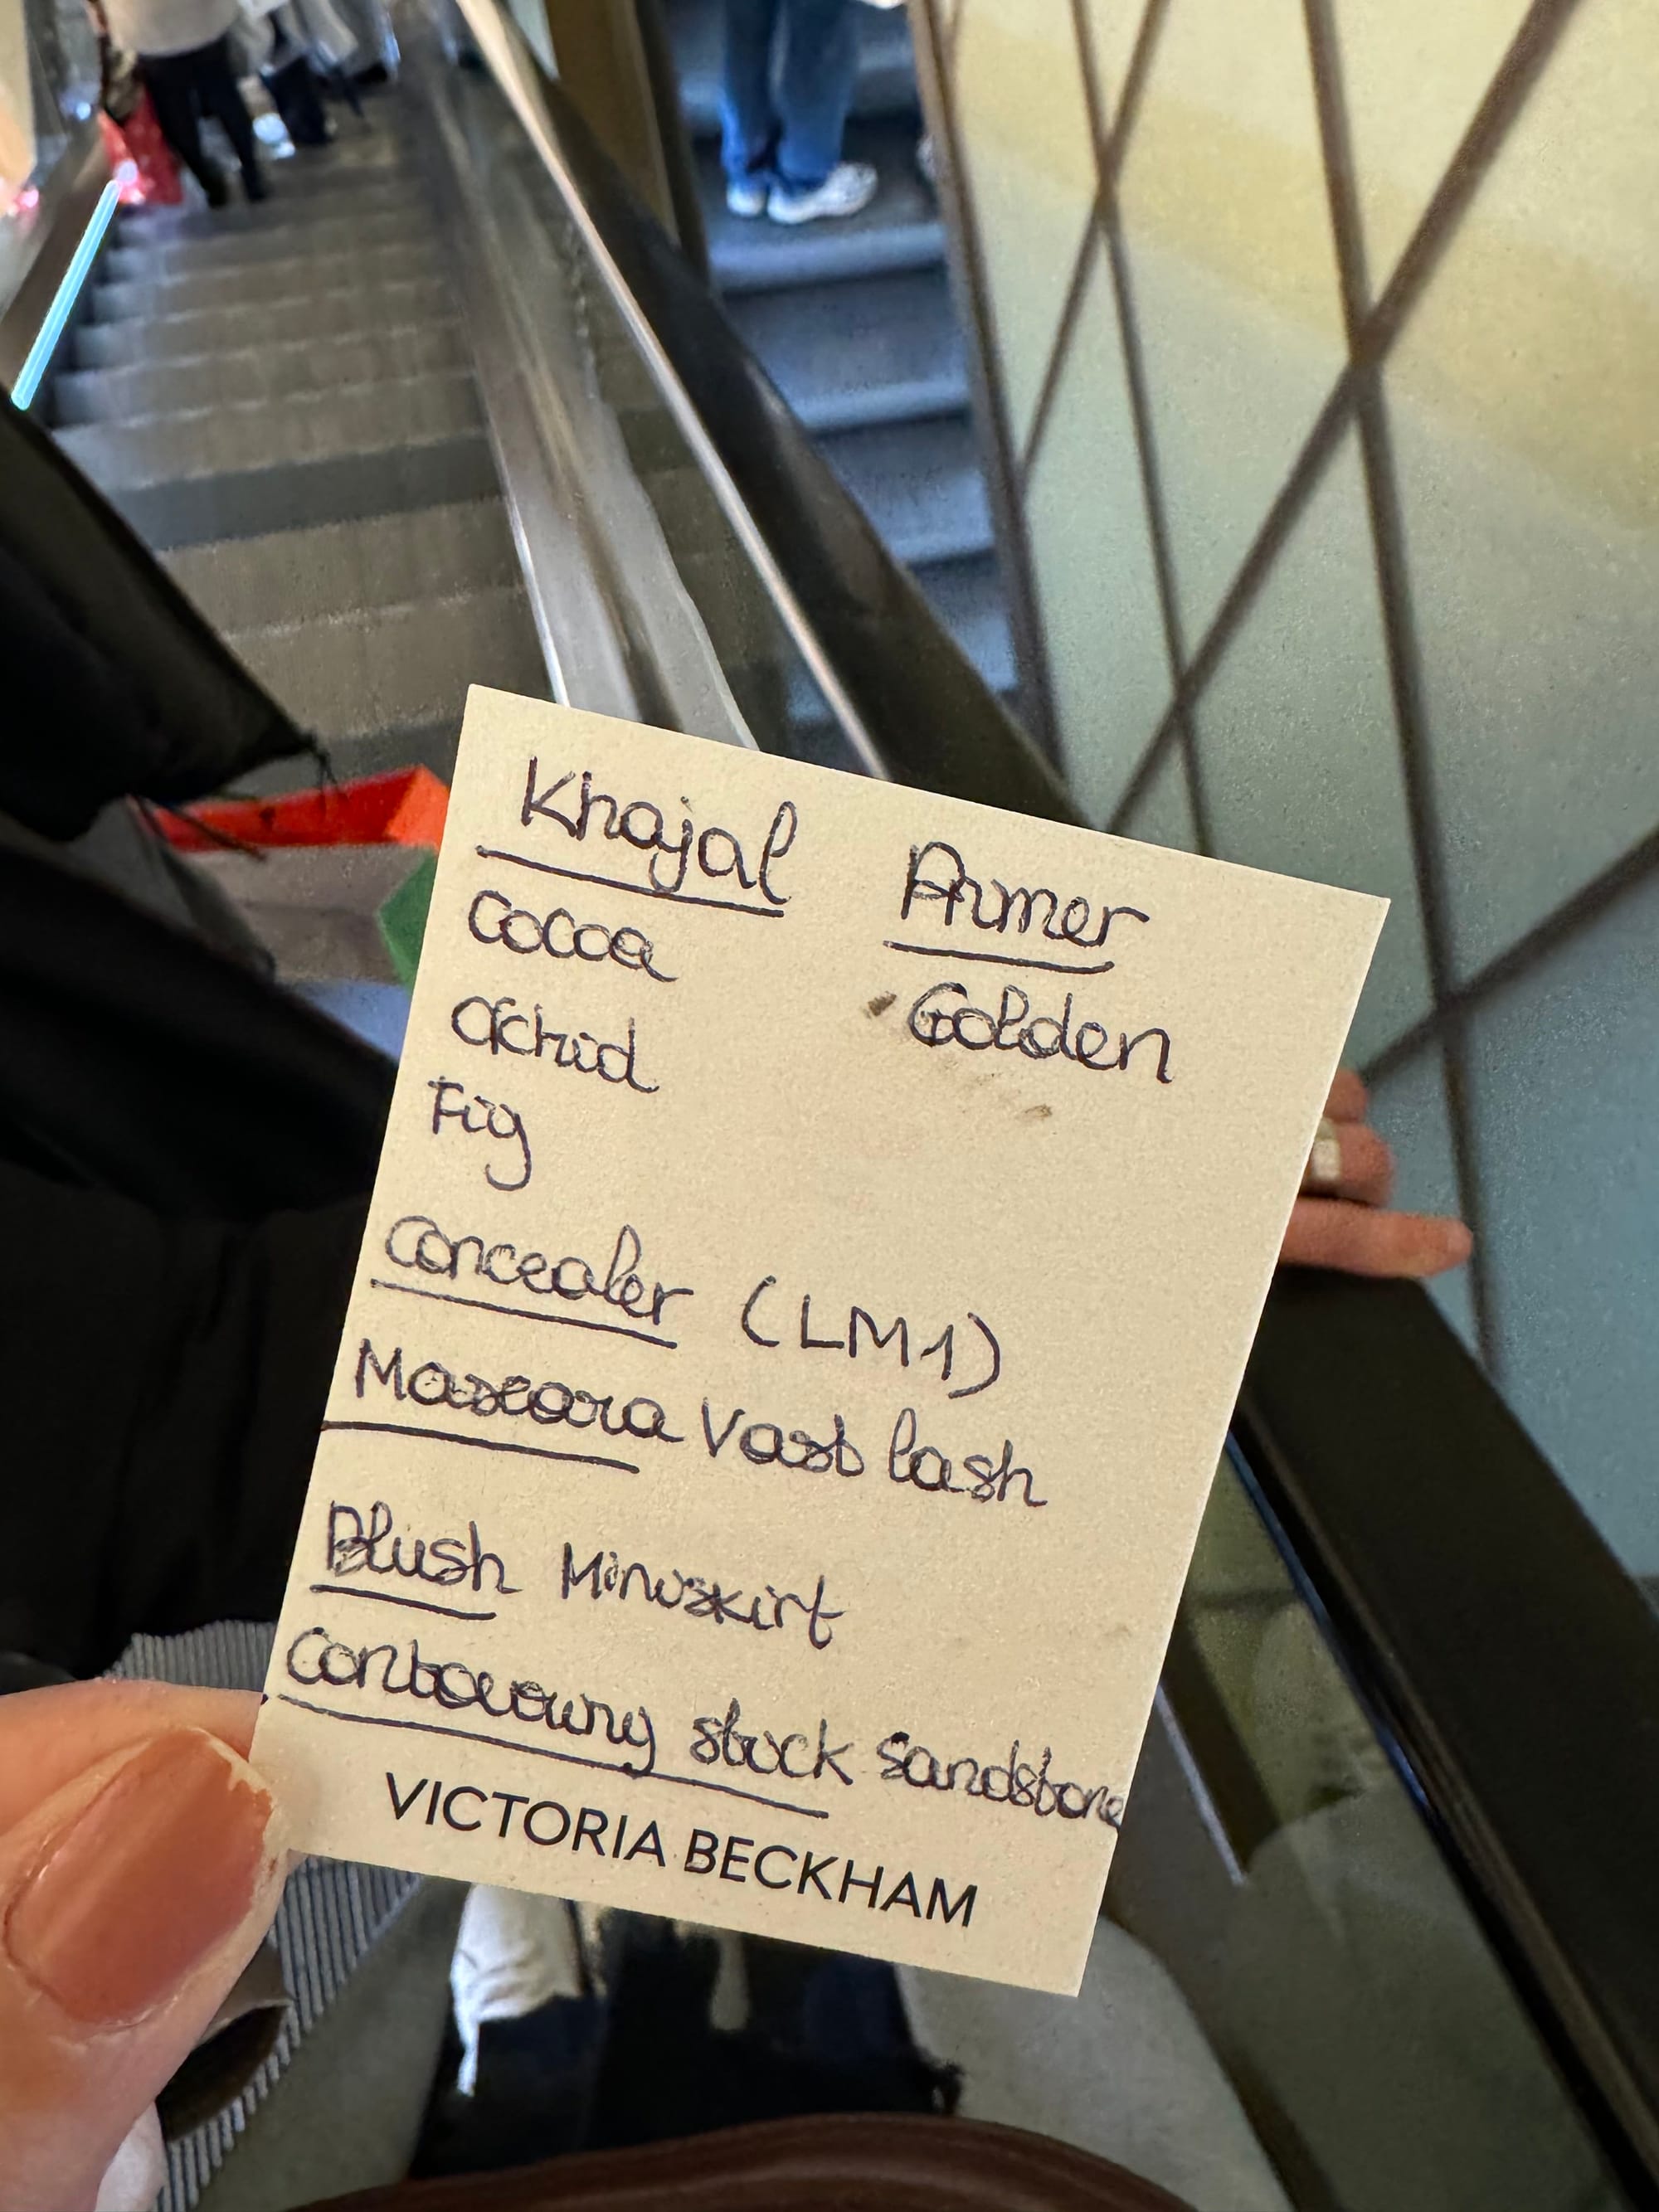 Khajal
Cocoa
Orchid
Fig
Armor
Golden
Concealer (LM1)
Mascara Vast lash
Blush Miniskirt
Contouring stick sandstone
VICTORIA BECKHAM